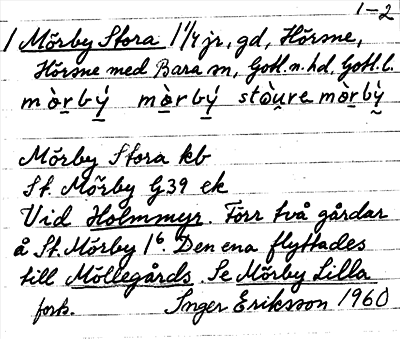 1-2
1 Mörby Stora 1 1/4 jr, gd, Hörsne,
Hörsne med Bara sn, Gotl. n. hd, Gotl. l.
mò̤rbý mò̤rbý stòu̯re mò̤rbý
Mörby Stora kb
St. Mörby G39 ek
Vid Holmmyr. Förr två gårdar
å St. Mörby 16. Den ena flyttades
till Möllegårds. Se Mörby Lilla
forts. Inger Eriksson 1960